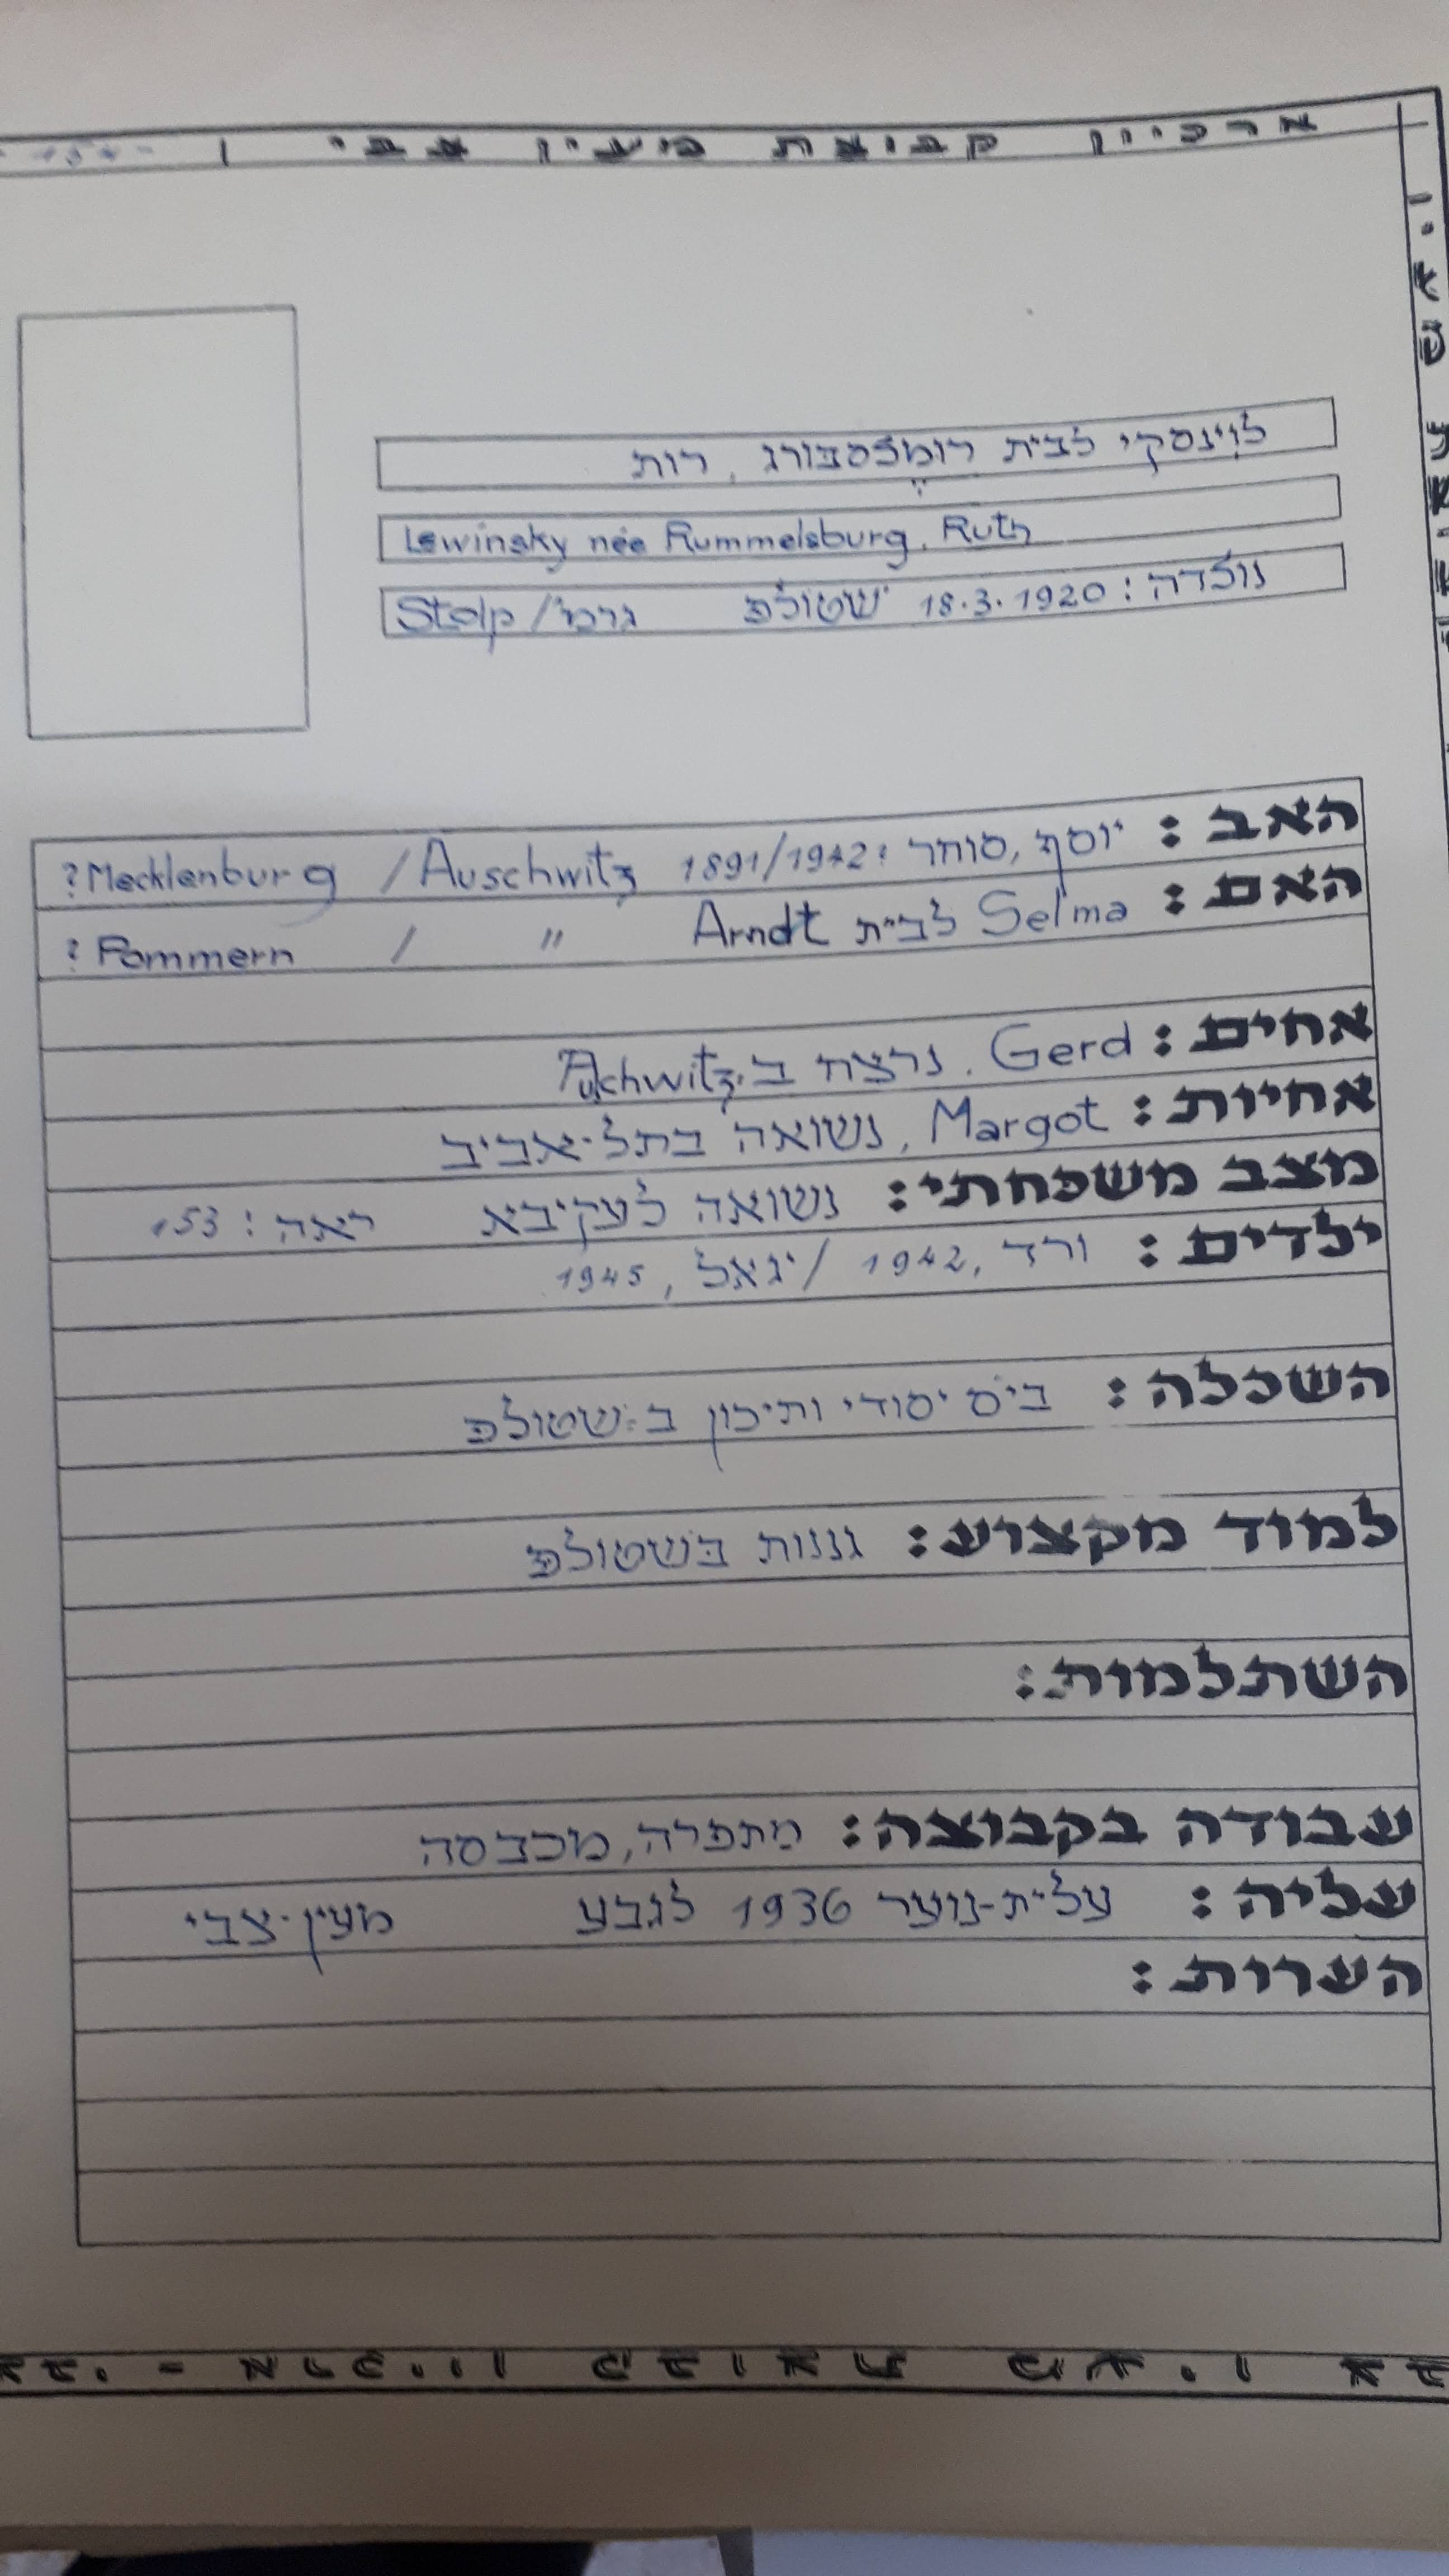 ארכיון קבוצת מעין צבי - 154 -
לוינסקי לבית רומלסבורג, רות
Lewinsky née Rummelsburg, Ruth
נולדה: 18.3.1920 שטולפ גרמ' / Stolp
האב: יוסף, סוחר: 1891/1942 Auschwitz / Mecklenburg ?
האם: Selma לבית Arndt " / Pommern ?
אחים: Gerd. נרצח ב. Auchwitz
אחיות: Margot, נשואה בתל-אביב
מצב משפחתי: נשואה לעקיבא ראה: 153
ילדים: ורד, 1942 / יגאל, 1945
השכלה: בי"ס יסודי ותיכון ב-שטולפ
למוד מקצוע: גננות בשטולפ
השתלמות:
עבודה בקבוצה: מתפרה, מכבסה
עליה: עלית-נוער 1936 לגבע מעין-צבי
הערות: